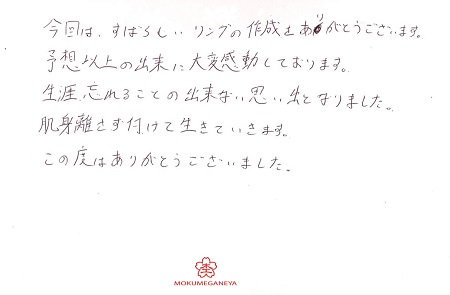 今回は、すばらしいリングの作成をありがとうございます。
予想以上の出来に大変感動しております。
生涯忘れることの出来ない思い出となりました。
肌身離さず付けて生きていきます。
この度はありがとうございました。
MOKUMEGANEYA